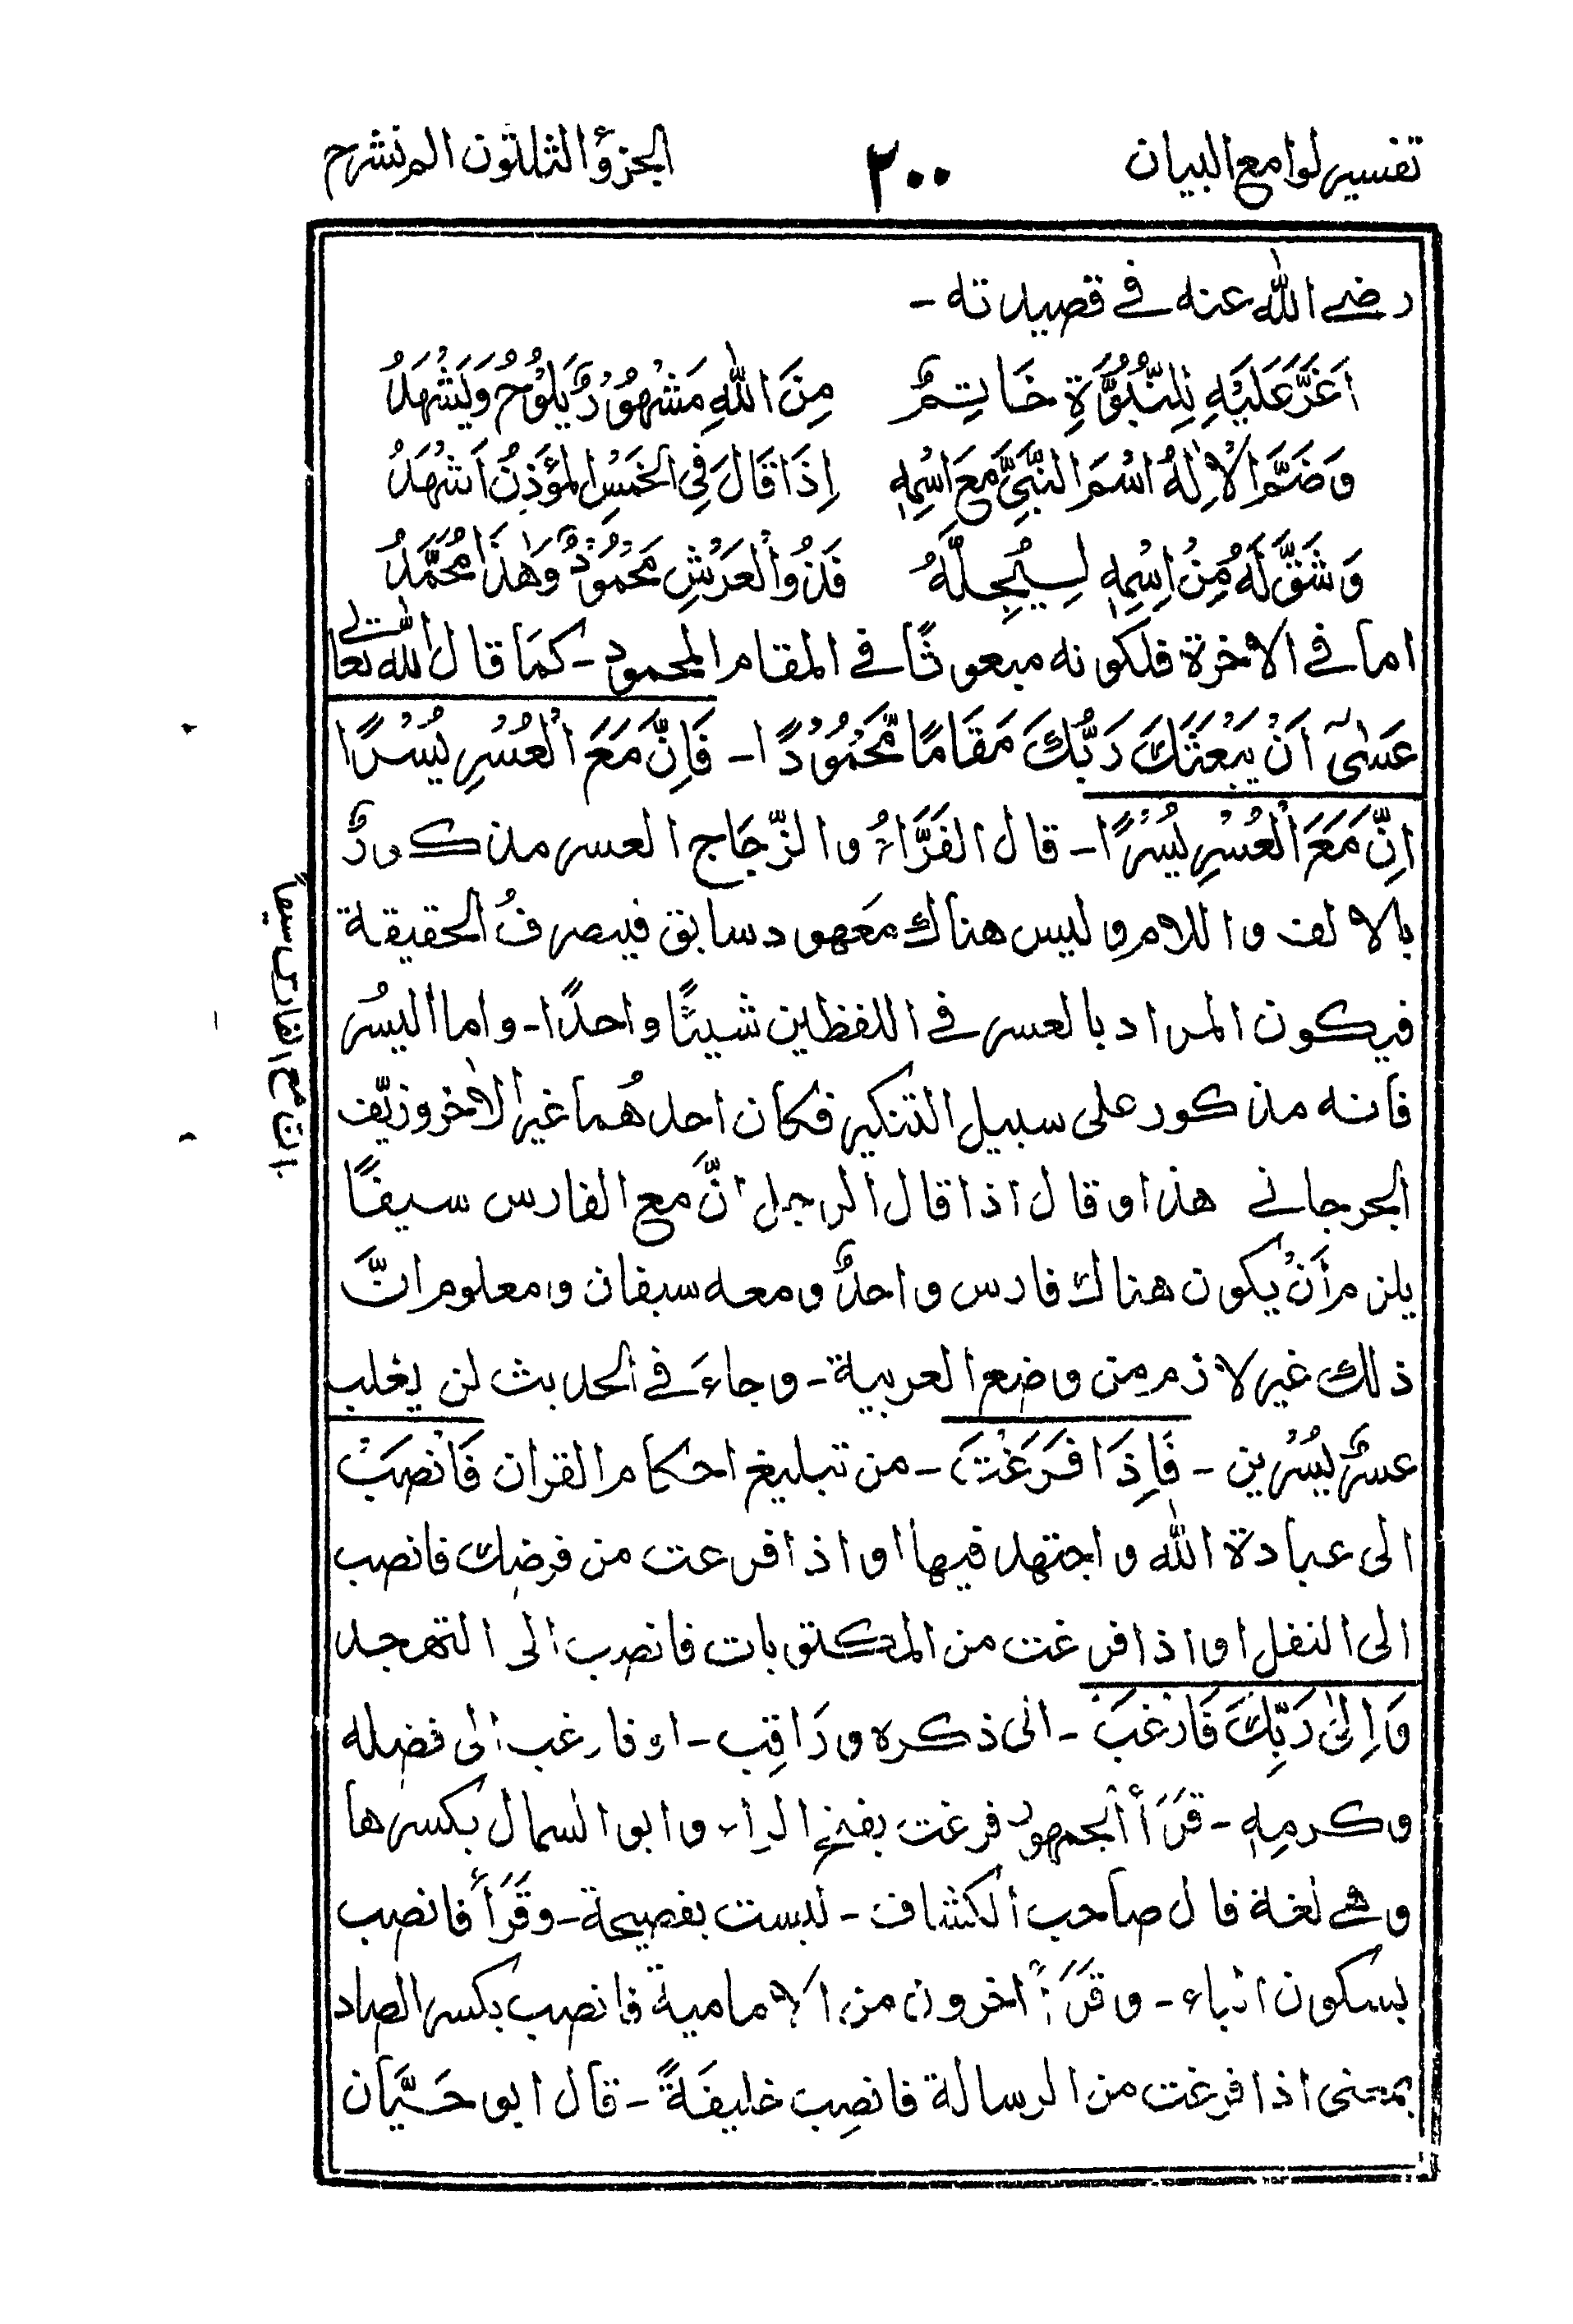 تفسير لوامع البيان ٢٠٠ الجزؤ الثلثون الم نشرح
رضے الله عنه فے قصيدته -
اَغَرَّ عَلَيْهِ لِلنُّبُوَّةِ خَاتِمٌ مِنَ اللّٰهِ مَشْهُوْرٌ يَلُوْحُ وَيَشْهَدُ
وَضَمَّ الْاِلٰهُ اسْمَ النَّبِيِّ مَعَ اسْمِهٖ اِذَا قَالَ فِي الْخَمْسِ الْمُؤَذِنُ اَشْهَدُ
وَشَقَّ لَهُ مِنْ اِسْمِهٖ لِيُجِلَّهُ فَذُو الْعَرْشِ مَحْمُوْدٌ وَهٰذَا مُحَمَّدُ
اما فے الاخرة فلكونه مبعوثًا فے المقام المحمود - كمَا قال الله تعالے
عَسٰىٓ اَنْ يَبْعَثَكَ رَبُّكَ مَقَامًا مَّحْمُوْدًا - فَاِنَّ مَعَ الْعُسْرِ يُسْرًا
اِنَّ مَعَ الْعُسْرِ يُسْرًا - قال الفَرَّاءُ والزّجَاج العسر مذكورٌ
بالالف واللام وليس هناك مَعهود سابق فيصرفُ الحقيقة
فيكون المراد بالعسر فے اللفظين شيئًا واحدًا - واما اليُسُر
فانه مذكور على سبيل التنكير فكان احدهُما غير الاٰخر وزيّف
الجرجانے هذا وقال اذا قال الرجل انَّ مع الفارس سيفًا
يلزم أنْ يكون هناك فارس واحدٌ ومعه سيفان ومعلوم انَّ
ذلك غير لازم مِن وضع العربية - وجاءَ فے الحديث لن يغلب
عسرٌ يُسْرين - فَاِذَا فَرَغْتَ - من تبليغ احكام القران فَانْصَبْ
الى عبادة الله واجتهد فيها او اذا فرغت من فرضك فانصب
الى النفل او اذا فرغت من المكتوبات فانصب الى التهجد
وَاِلىٰ رَبِّكَ فَارْغَبْ - الى ذكره ورَاقِب - او فارغب الى فضله
وكرمِهٖ - قَرَأ الجمهور فرغت بفتح الراء وابو السمال بكسرها
وهے لغة قال صاحب الكشاف - ليست بفصيحة - وقَرَأَ فانصب
بسكون الباء - وقَرَأ اٰخرون من الامامية فانصب بكسر الصاد
بمعنى اذا فرغت من الرسالة فانصِب خليفَةً - قال ابو حَيَّان
ان مع الفارس سيفاً